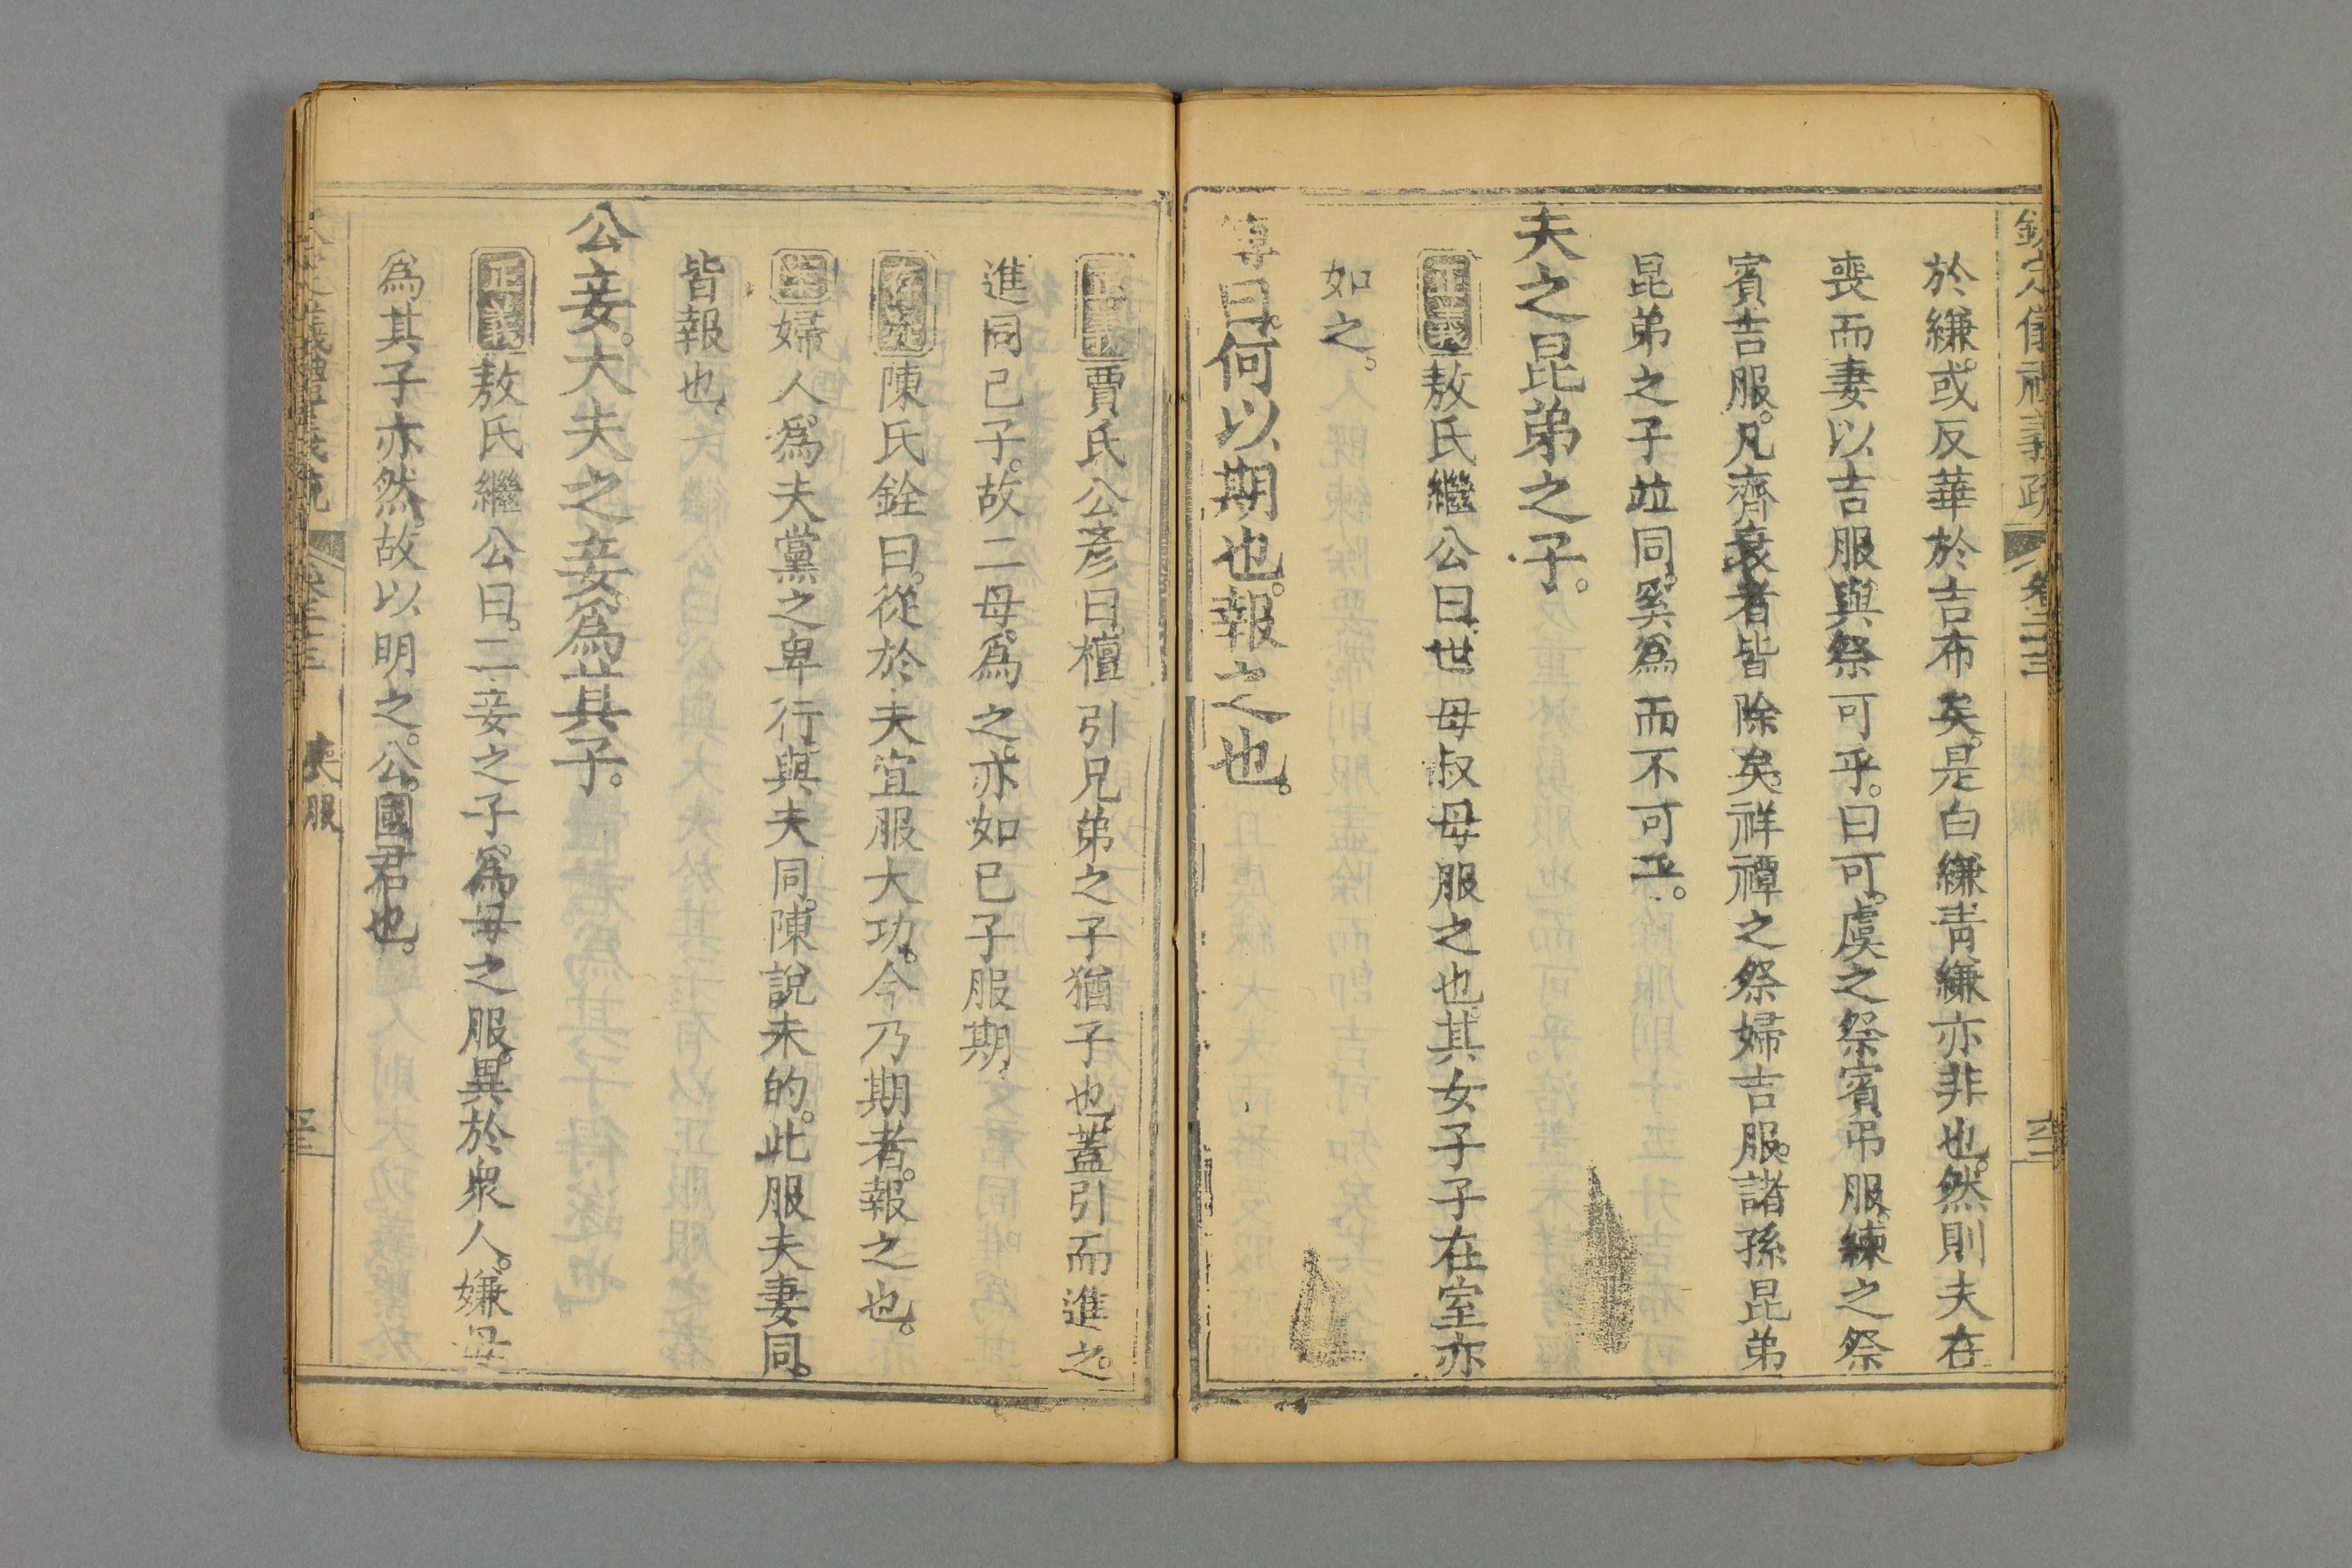 欽定儀禮義疏 卷二十三
於縑。或反華於吉布矣。是白縑青縑亦非也。然則夫在
喪而妻以吉服與祭可乎。曰可。虞之祭賓弔服。練之祭
賓吉服。凡齊衰者皆除矣。祥禫之祭婦吉服。諸孫昆弟
昆弟之子竝同。奚爲而不可乎。
夫之昆弟之子。
正義敖氏繼公曰。世母叔母服之也。其女子子在室亦
如之。
傳曰。何以期也。報之也。
正義賈氏公彥曰。檀引兄弟之子猶子也。蓋引而進之。
進同己子。故二母爲之。亦如己子服期。
存疑陳氏銓曰。從於夫宜服大功。今乃期者。報之也。
案婦人爲夫黨之卑行與夫同。陳說未的。此服夫妻同。
皆報也。
公妾。大夫之妾爲其子。
正義敖氏繼公曰。二妾之子。爲母之服。異於衆人。嫌母
爲其子亦然。故以明之。公。國君也。
喪服